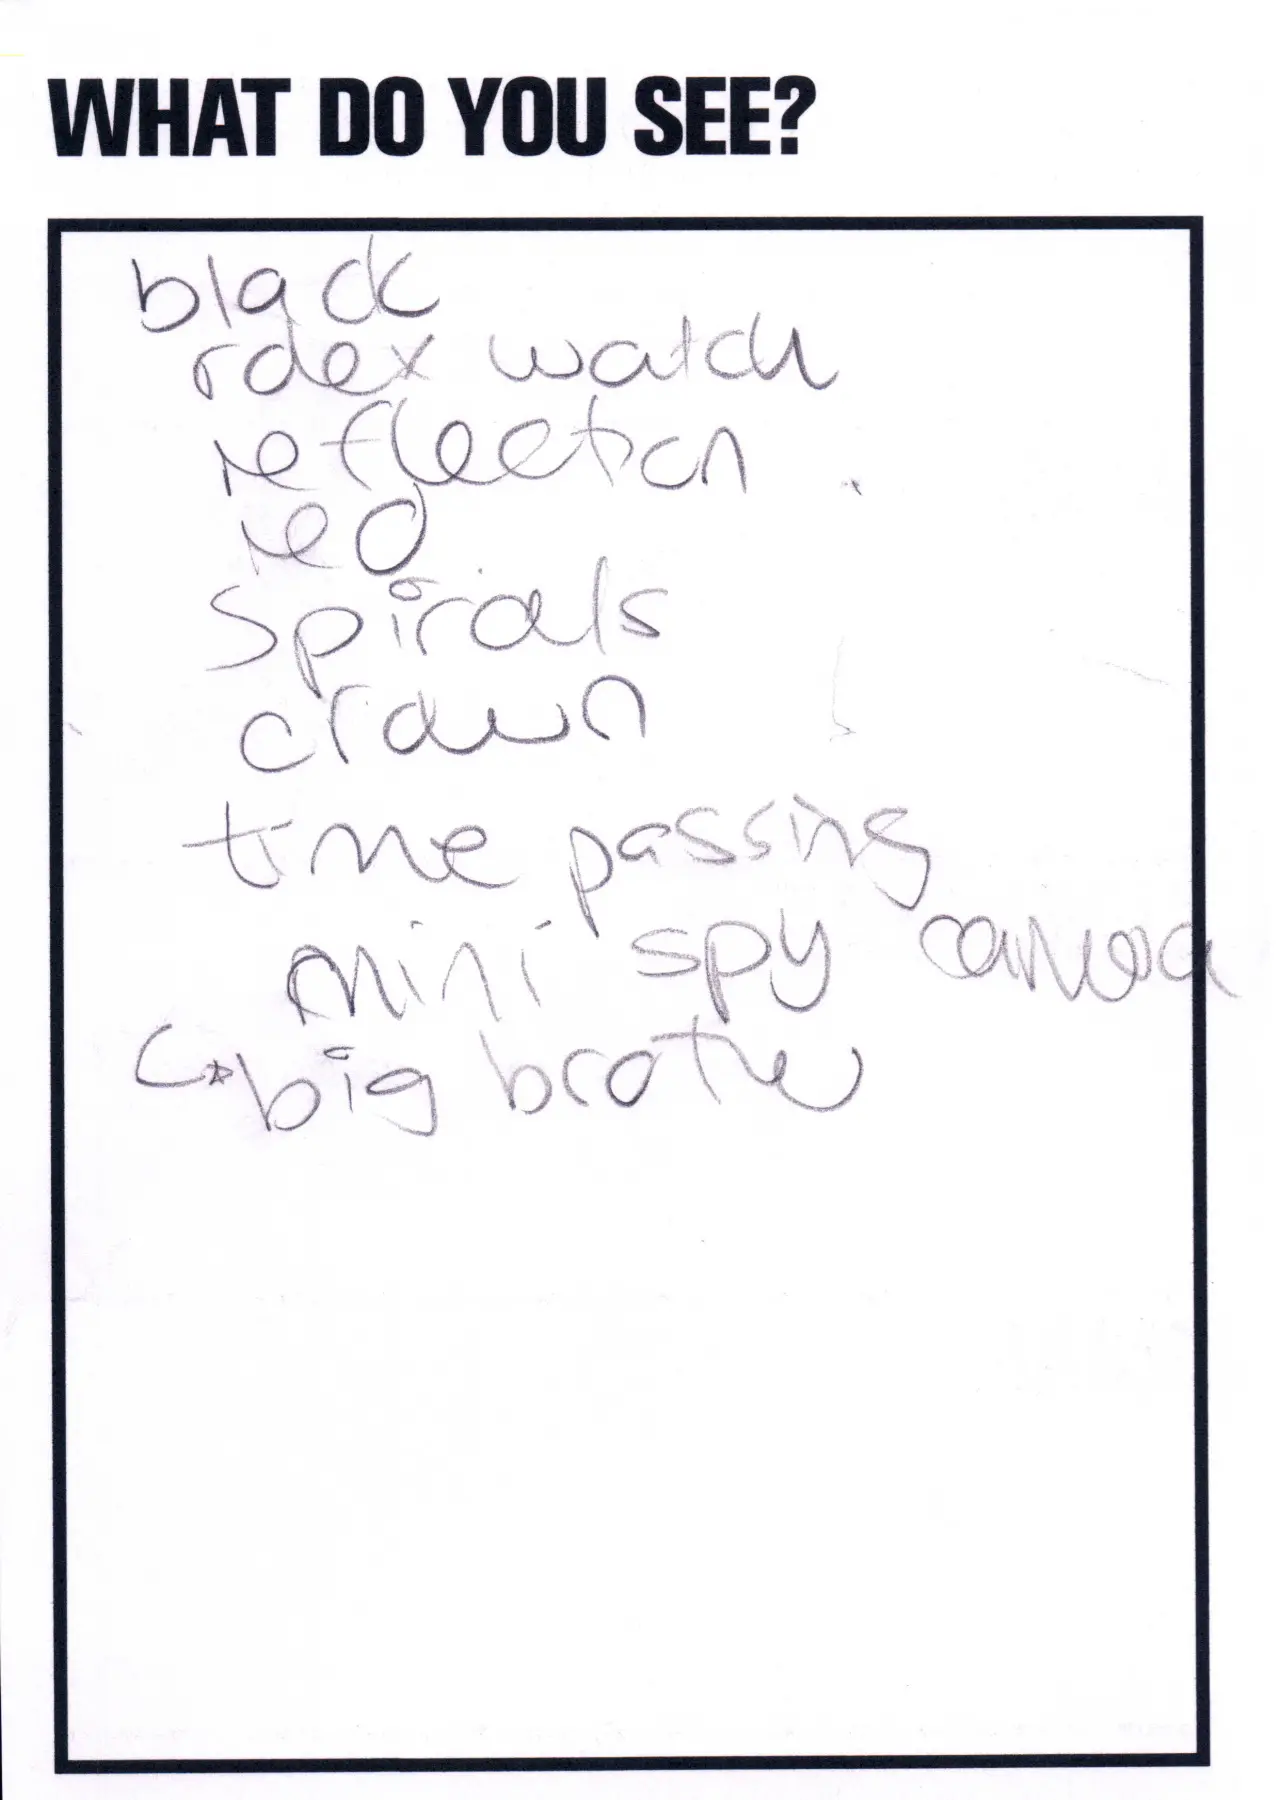 WHAT DO YOU SEE?
black
rolex watch
reflection
red
spirals
crown
time passing
mini spy camera
big brother